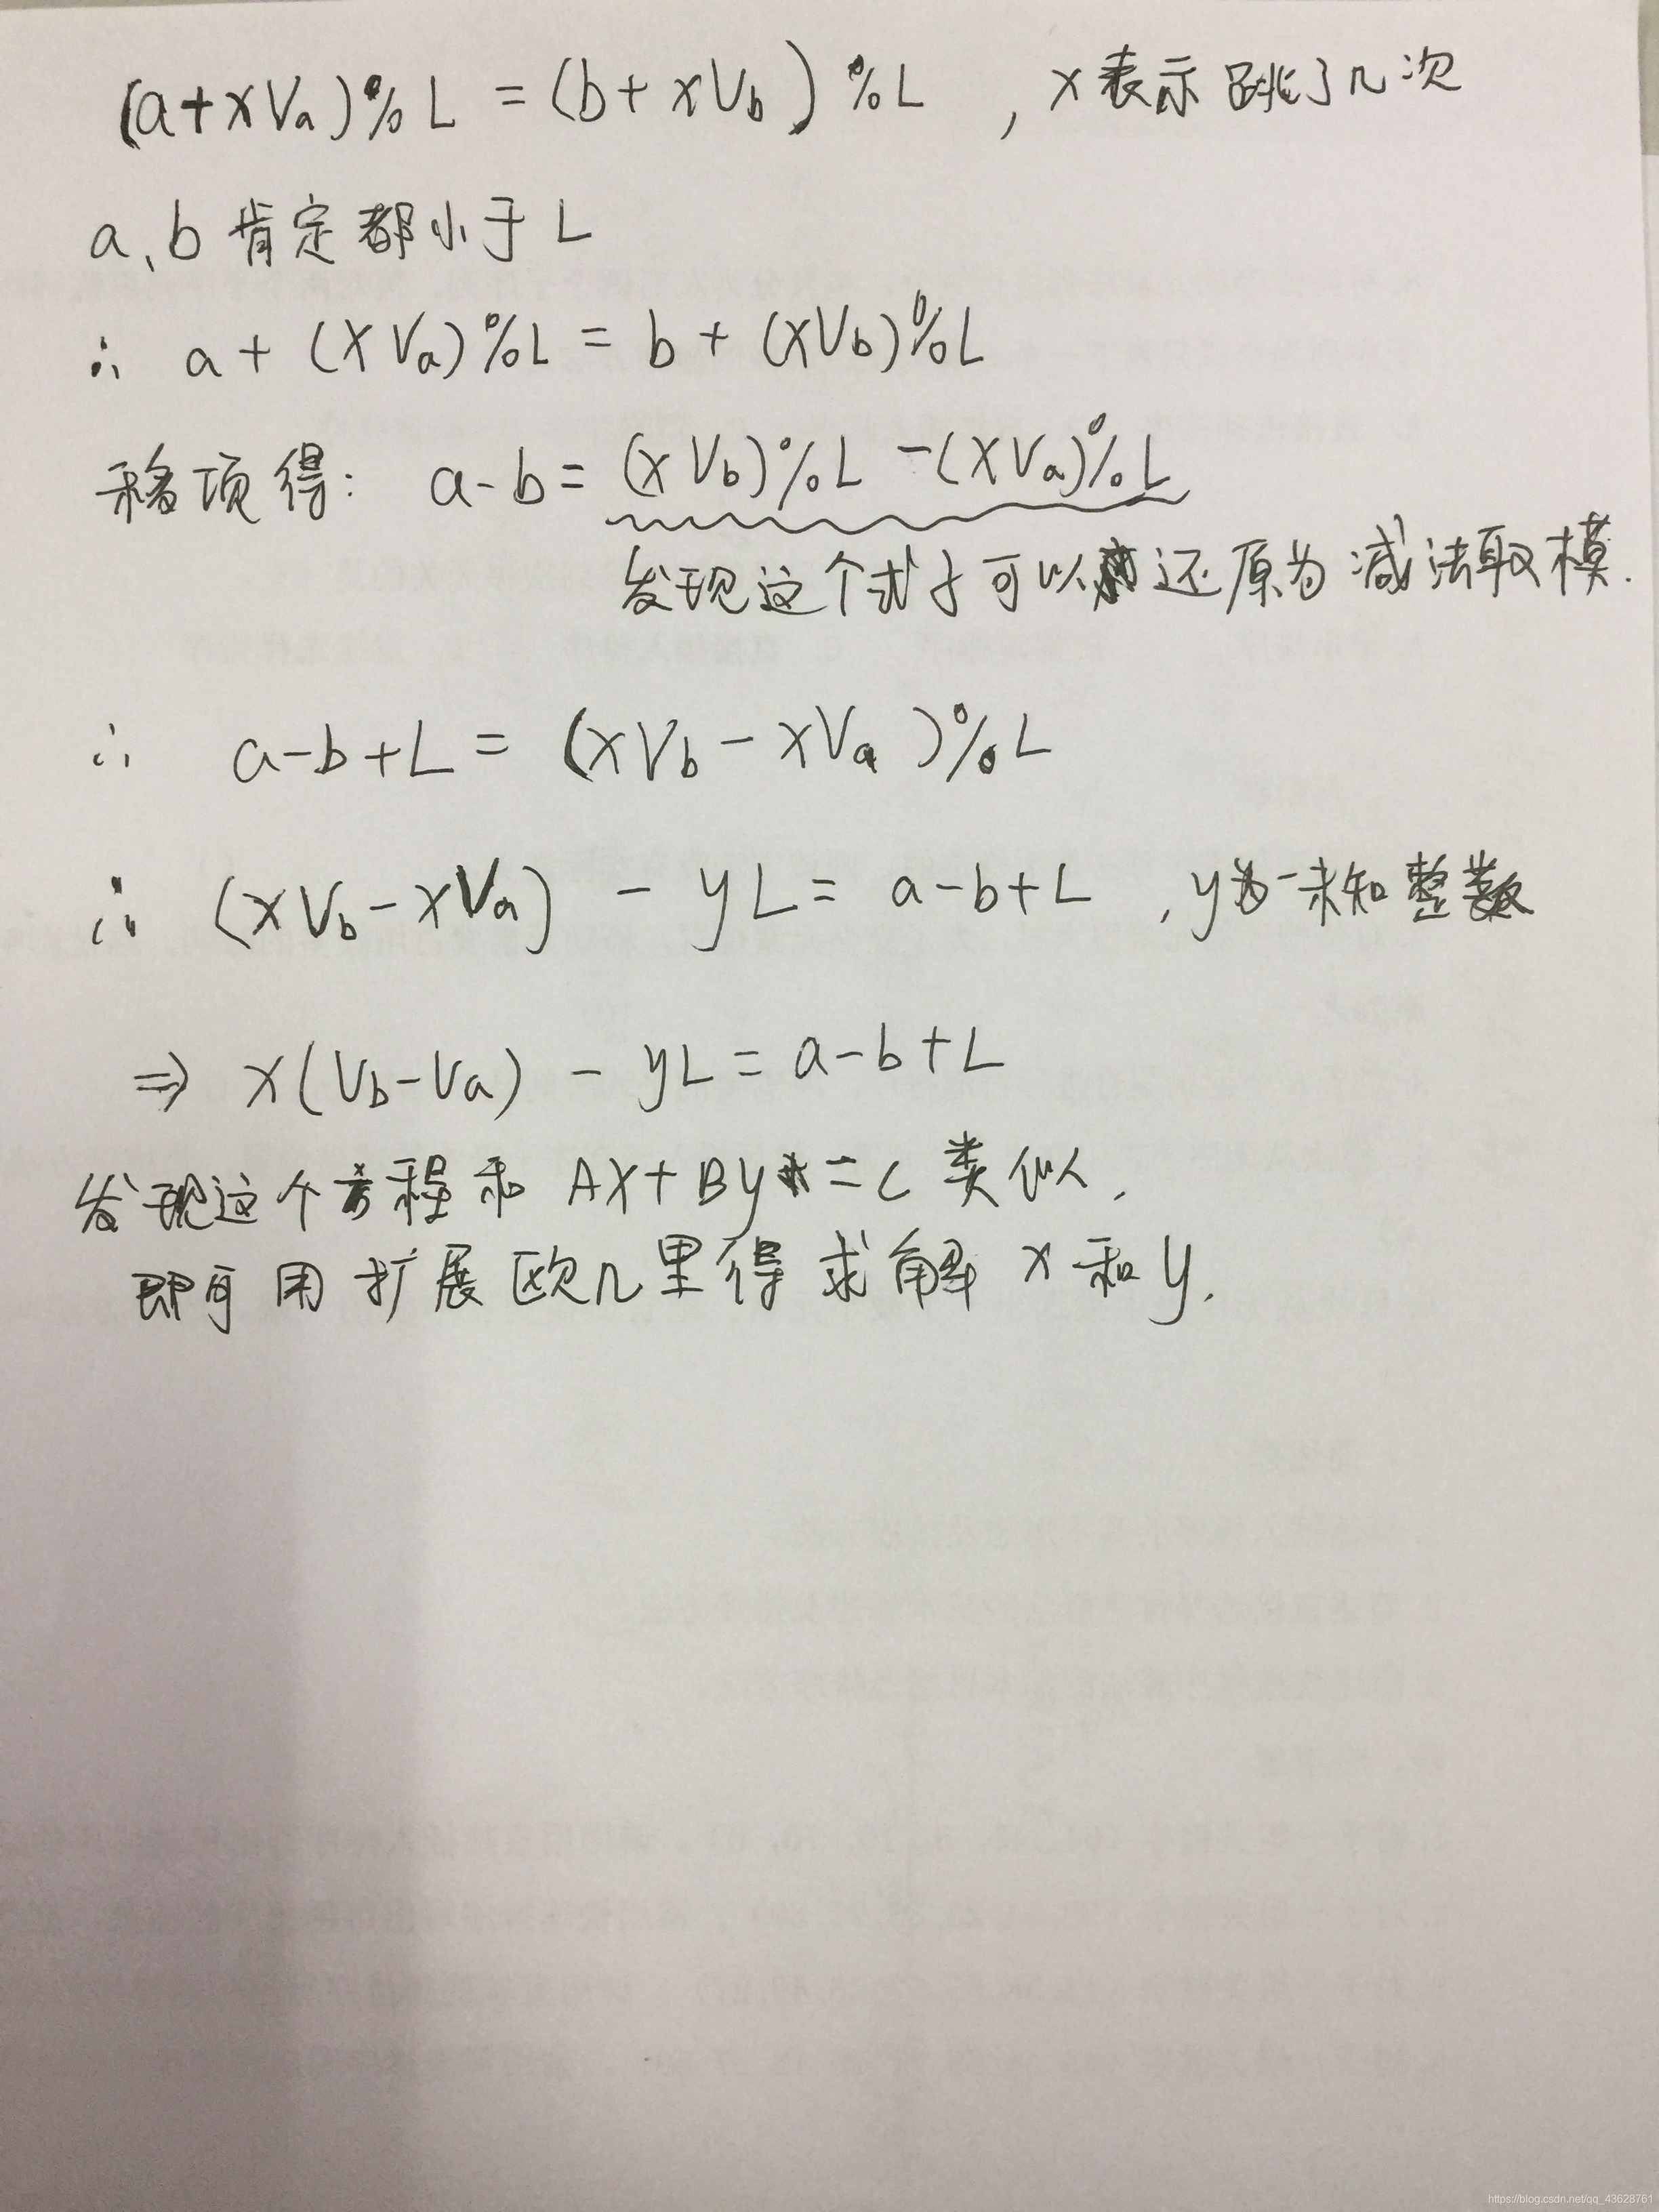 (a+xVa)%L = (b+xVb)%L , x表示跳了几次
a、b肯定都小于L
∴ a+(xVa)%L = b+(xVb)%L
移项得: a-b = (xVb)%L -(xVa)%L
发现这个式子可以还原为减法取模.
∴ a-b+L = (xVb-xVa)%L
∴ (xVb-xVa) - yL = a-b+L , y为一未知整数
⇒ x(Vb-Va) - yL = a-b+L
发现这个方程和 Ax+By=C 类似,
即可用扩展欧几里得求解 x 和 y.
https://blog.csdn.net/qq_43628761